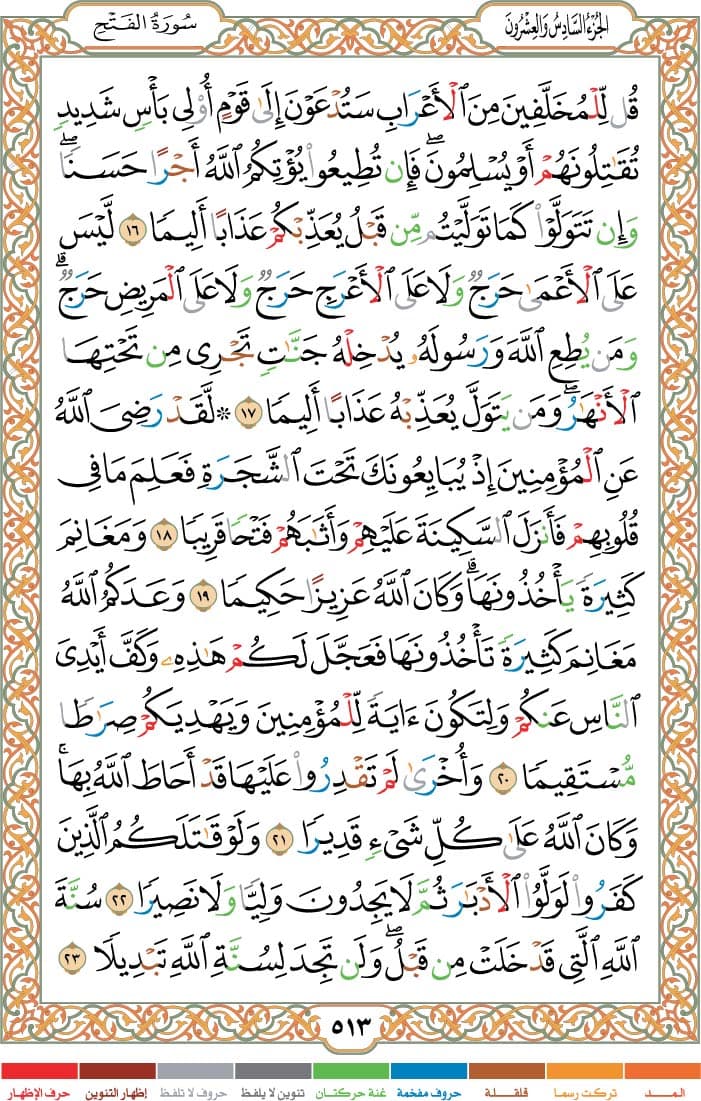 الجُزْءُ السَّادِسُ وَالعِشْرُونَ
سُورَةُ الفَتْحِ
قُل لِّلْمُخَلَّفِينَ مِنَ ٱلْأَعْرَابِ سَتُدْعَوْنَ إِلَىٰ قَوْمٍ أُو۟لِى بَأْسٍ شَدِيدٍ
تُقَٰتِلُونَهُمْ أَوْ يُسْلِمُونَ ۖ فَإِن تُطِيعُوا۟ يُؤْتِكُمُ ٱللَّهُ أَجْرًا حَسَنًا ۖ
وَإِن تَتَوَلَّوْا۟ كَمَا تَوَلَّيْتُم مِّن قَبْلُ يُعَذِّبْكُمْ عَذَابًا أَلِيمًا ١٦ لَّيْسَ
عَلَى ٱلْأَعْمَىٰ حَرَجٌ وَلَا عَلَى ٱلْأَعْرَجِ حَرَجٌ وَلَا عَلَى ٱلْمَرِيضِ حَرَجٌ ۗ
وَمَن يُطِعِ ٱللَّهَ وَرَسُولَهُۥ يُدْخِلْهُ جَنَّٰتٍ تَجْرِى مِن تَحْتِهَا
ٱلْأَنْهَٰرُ ۖ وَمَن يَتَوَلَّ يُعَذِّبْهُ عَذَابًا أَلِيمًا ١٧ ۞ لَّقَدْ رَضِىَ ٱللَّهُ
عَنِ ٱلْمُؤْمِنِينَ إِذْ يُبَايِعُونَكَ تَحْتَ ٱلشَّجَرَةِ فَعَلِمَ مَا فِى
قُلُوبِهِمْ فَأَنزَلَ ٱلسَّكِينَةَ عَلَيْهِمْ وَأَثَٰبَهُمْ فَتْحًا قَرِيبًا ١٨ وَمَغَانِمَ
كَثِيرَةً يَأْخُذُونَهَا ۗ وَكَانَ ٱللَّهُ عَزِيزًا حَكِيمًا ١٩ وَعَدَكُمُ ٱللَّهُ
مَغَانِمَ كَثِيرَةً تَأْخُذُونَهَا فَعَجَّلَ لَكُمْ هَٰذِهِۦ وَكَفَّ أَيْدِىَ
ٱلنَّاسِ عَنكُمْ وَلِتَكُونَ ءَايَةً لِّلْمُؤْمِنِينَ وَيَهْدِيَكُمْ صِرَٰطًا
مُّسْتَقِيمًا ٢٠ وَأُخْرَىٰ لَمْ تَقْدِرُوا۟ عَلَيْهَا قَدْ أَحَاطَ ٱللَّهُ بِهَا ۚ
وَكَانَ ٱللَّهُ عَلَىٰ كُلِّ شَىْءٍ قَدِيرًا ٢١ وَلَوْ قَٰتَلَكُمُ ٱلَّذِينَ
كَفَرُوا۟ لَوَلَّوُا۟ ٱلْأَدْبَٰرَ ثُمَّ لَا يَجِدُونَ وَلِيًّا وَلَا نَصِيرًا ٢٢ سُنَّةَ
ٱللَّهِ ٱلَّتِى قَدْ خَلَتْ مِن قَبْلُ ۖ وَلَن تَجِدَ لِسُنَّةِ ٱللَّهِ تَبْدِيلًا ٢٣
٥١٣
المـــد تركت رسما قلقـلة حروف مفخمة غنة حركتان تنوين لا يلفظ حروف لا تلفظ إظهار التنوين حرف الإظهار